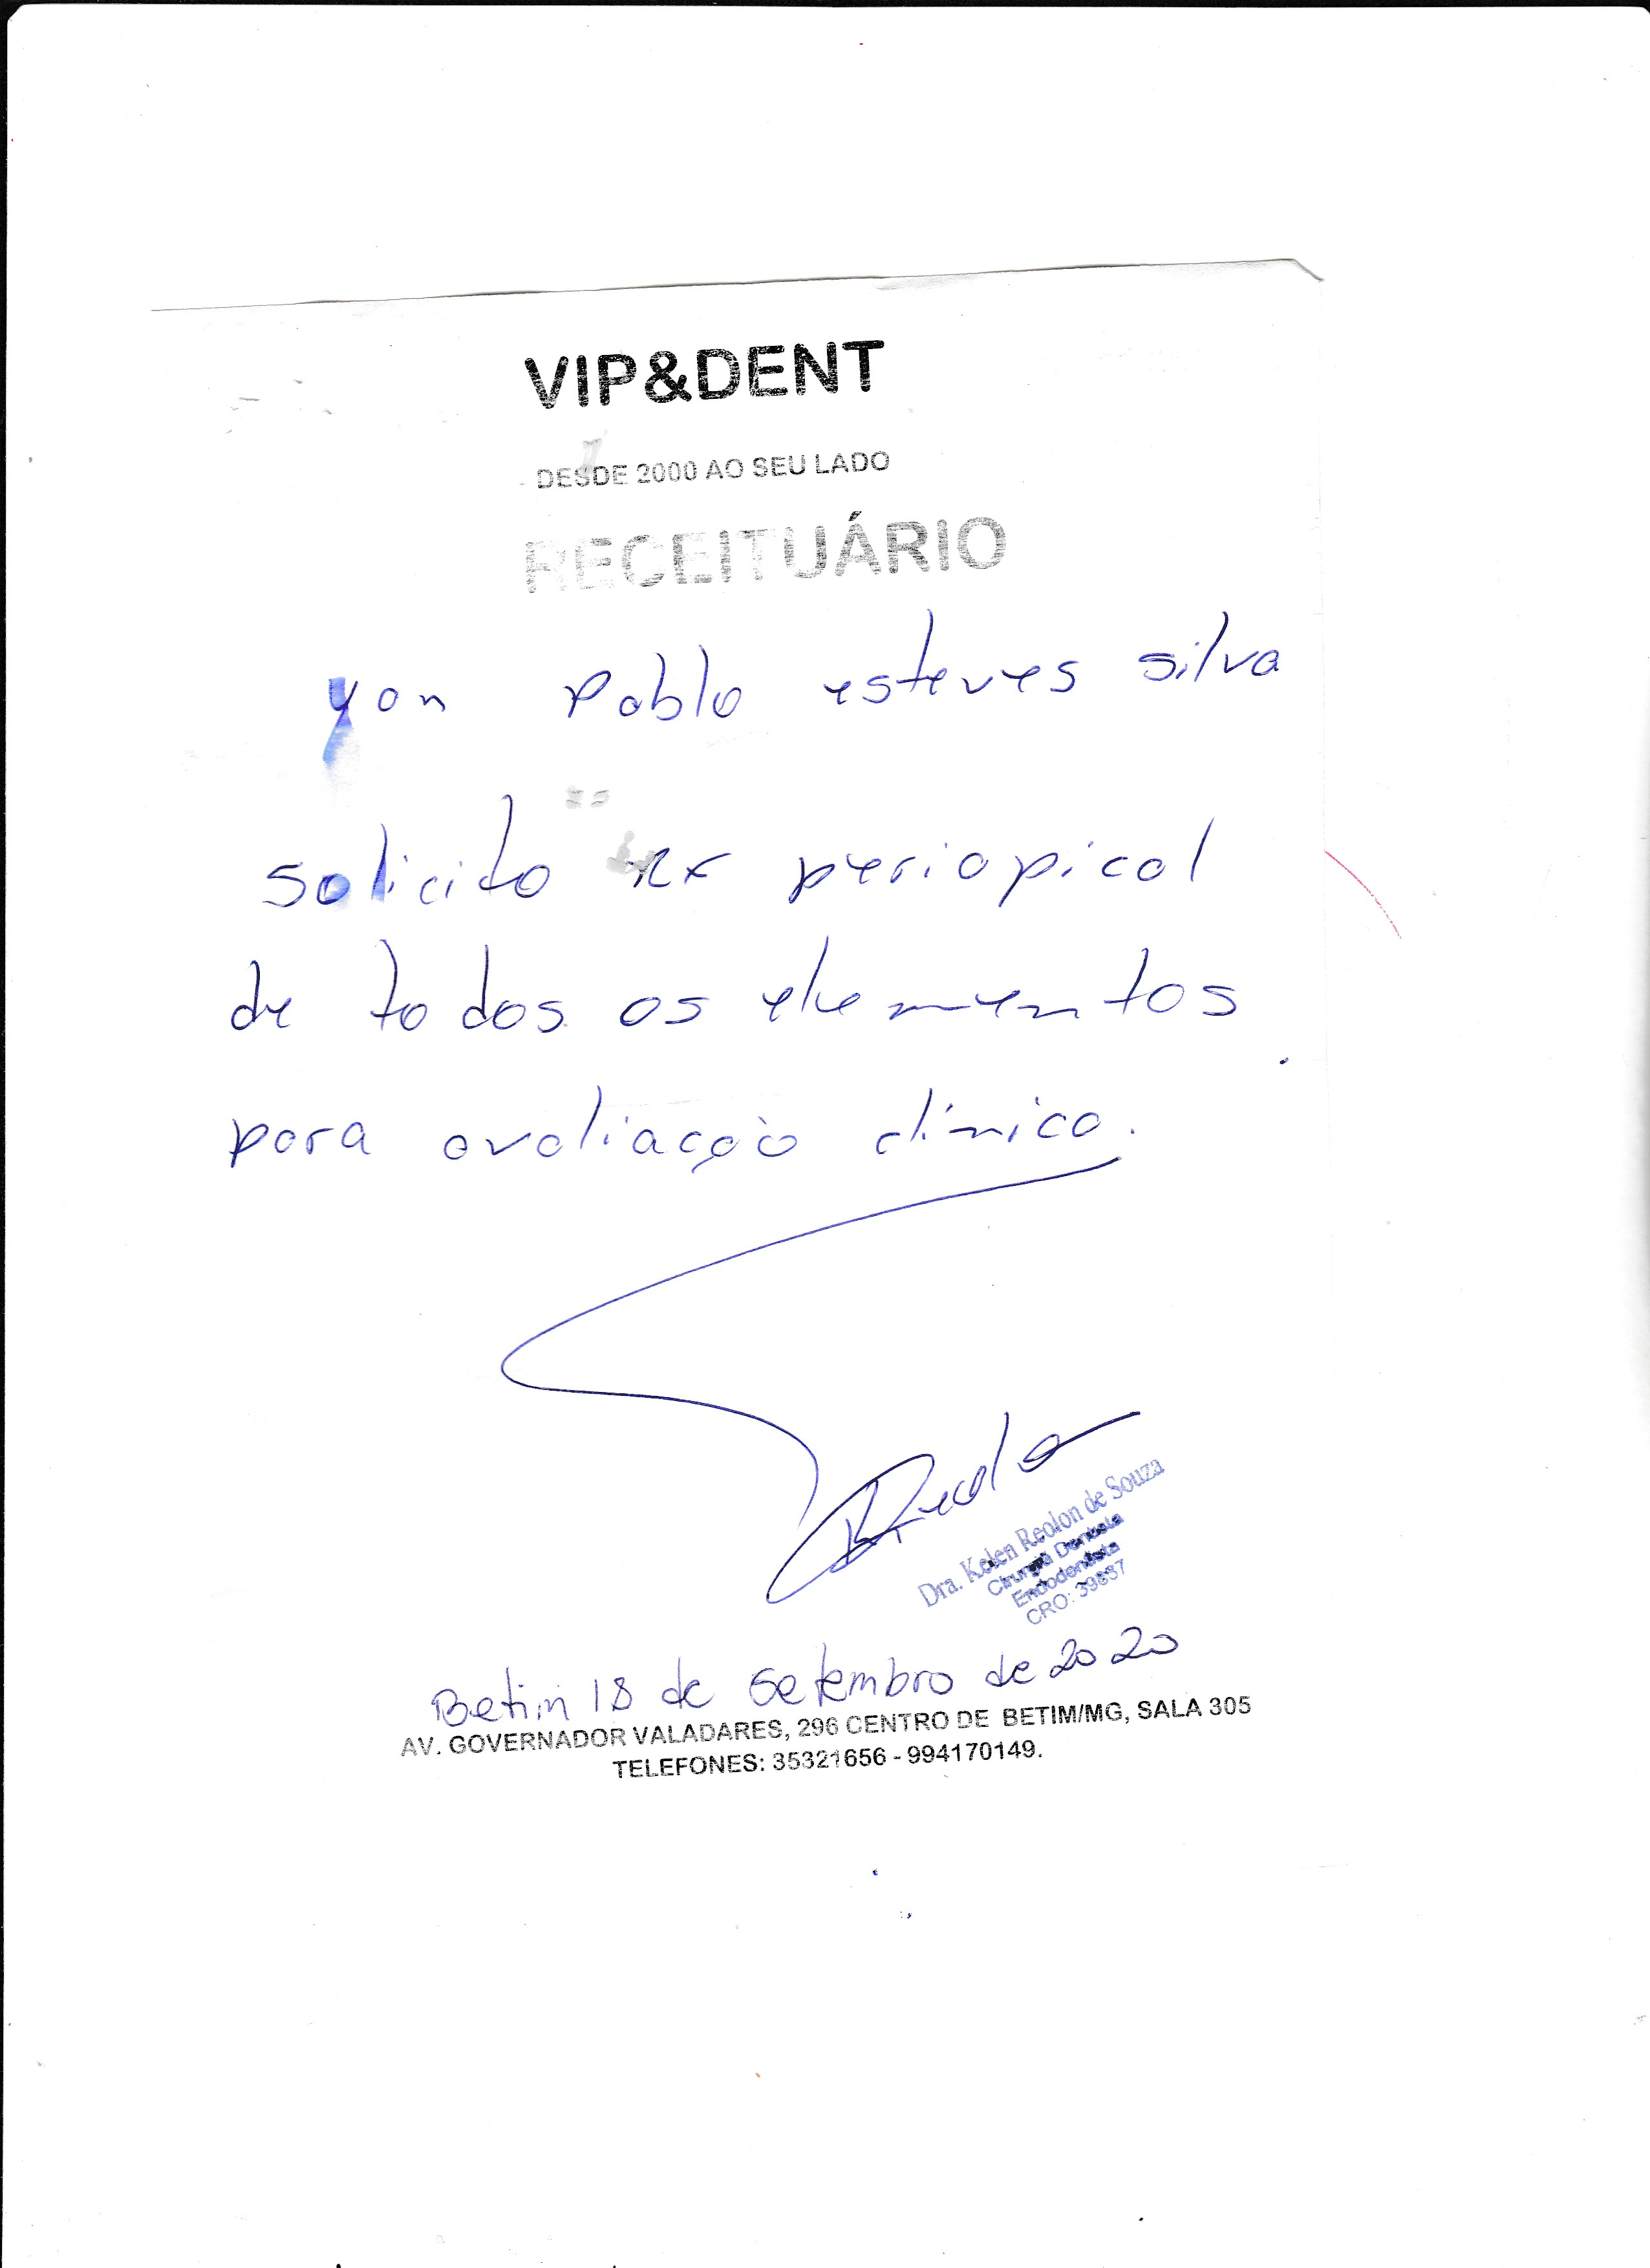 VIP&DENT
DESDE 2000 AO SEU LADO
RECEITUÁRIO
yan Pablo esteves silva
solicito Rx periapical
de todos os elementos
para avaliação clínica.
Dra. Kelen Reolon de Souza
Cirurgiã Dentista
Endodontista
CRO: 39837
Betim 18 de setembro de 2020
AV. GOVERNADOR VALADARES, 296 CENTRO DE BETIM/MG, SALA 305
TELEFONES: 35321656 - 994170149.